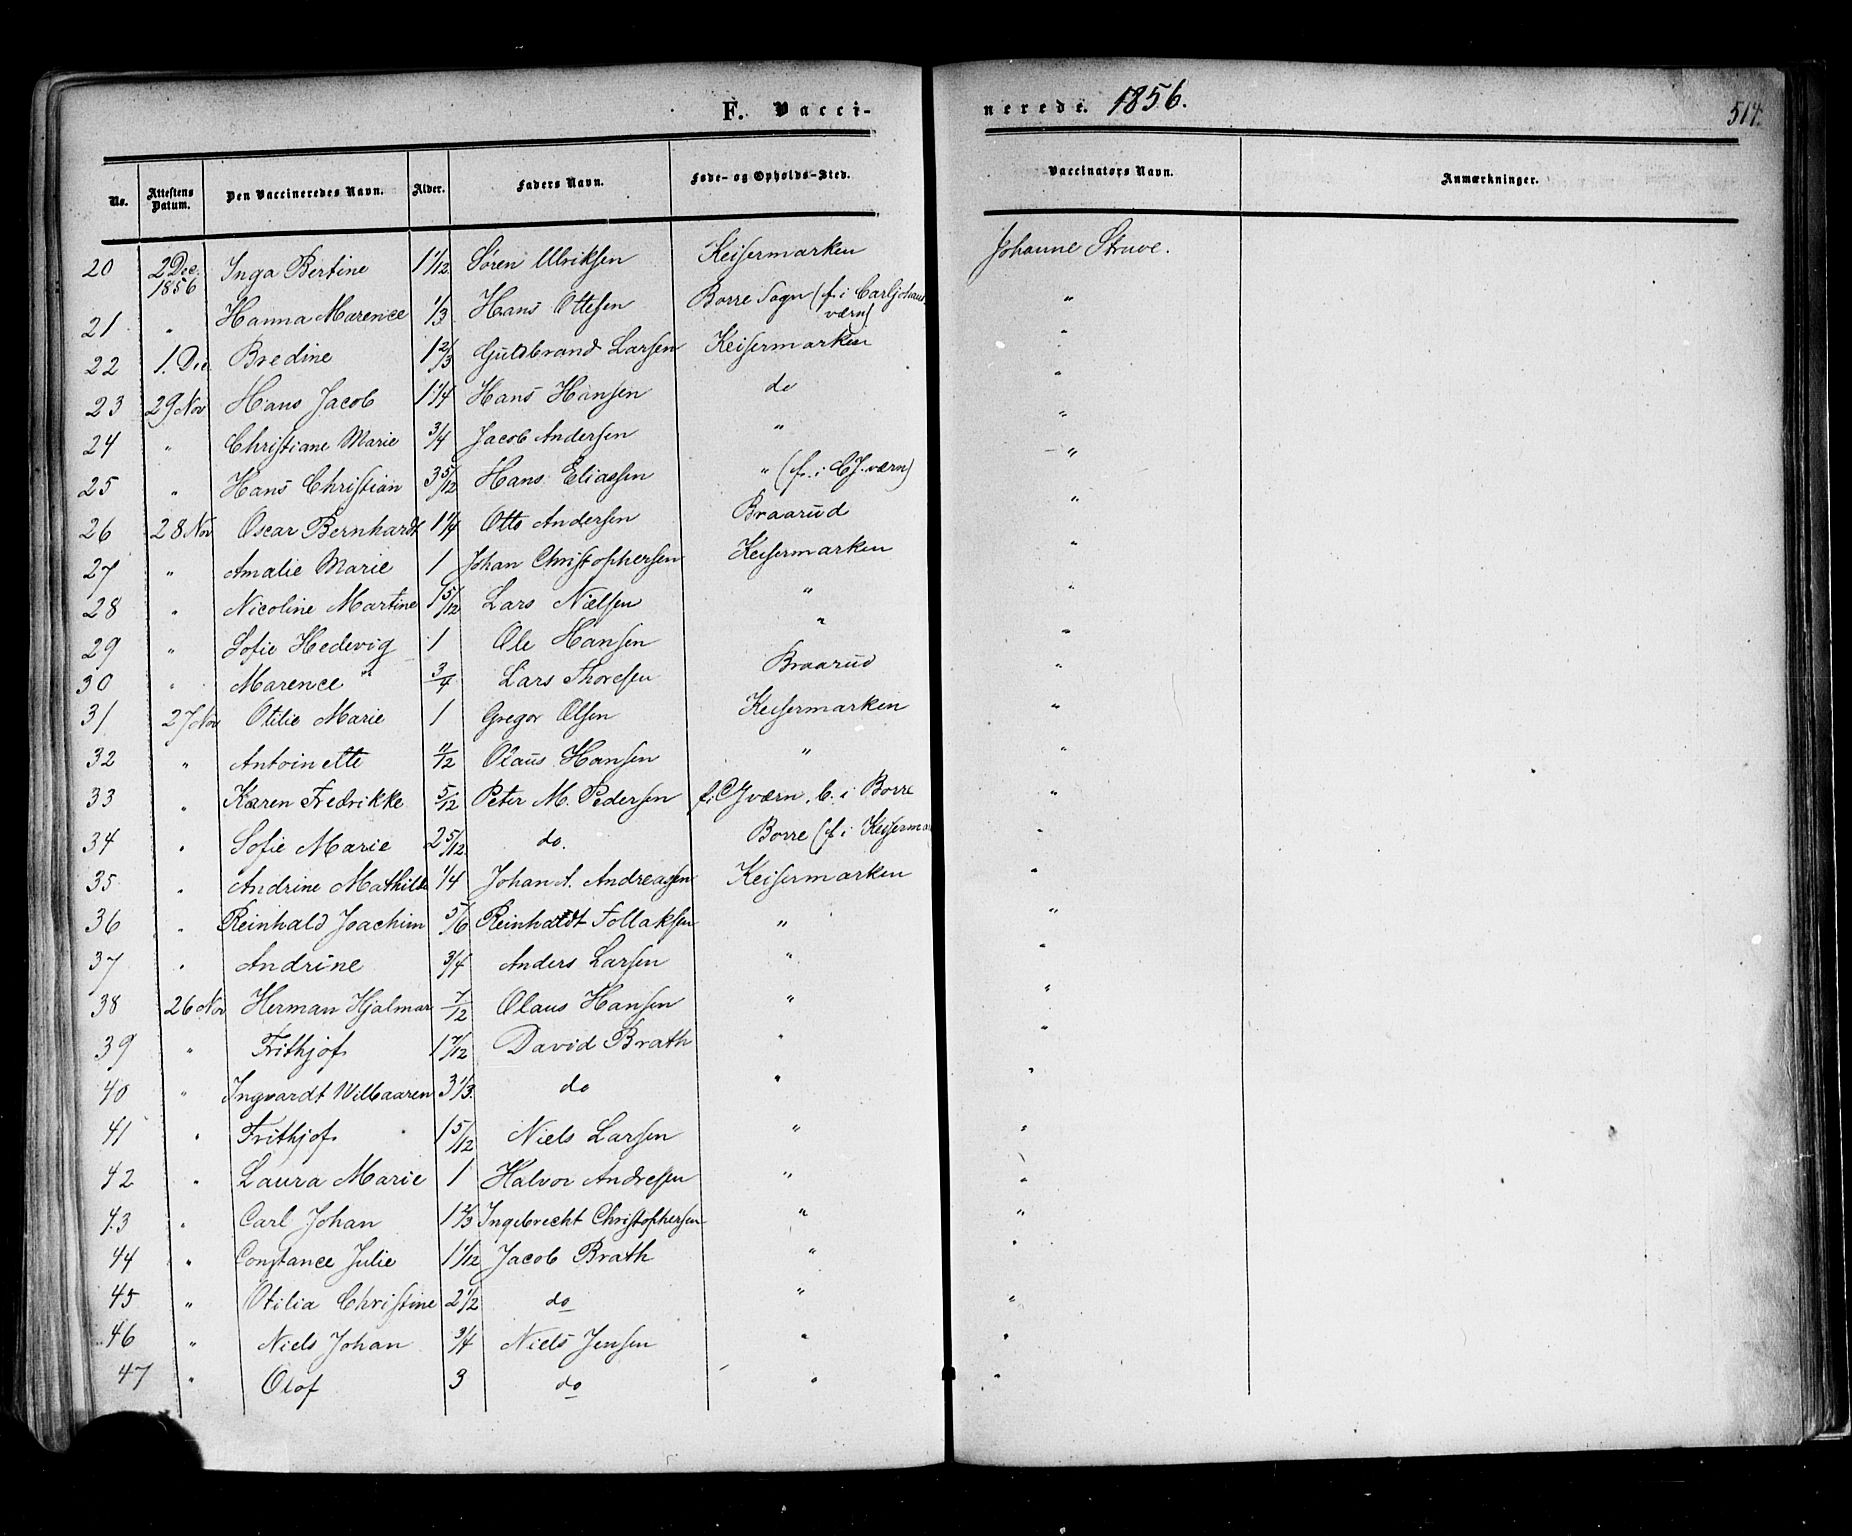 F. Vacci-
nerede. 1856.
514.
No. Attestens Datum. Den Vaccineredes Navn. Alder. Faders Navn. Føde- og Opholds-Sted. Vaccinators Navn. Anmærkninger.
20 2 Dec. 1856 Inga Bertine 1 1/12 Søren Ulriksen Keisermarken Johanne Struve.
21 " Hanna Marence 1/3 Hans Ottesen Borre Sogn (f. i Carljohansværn) "
22 1. Dec Bredine 1 2/3 Guldbrand Larsen Keisermarken "
23 29 Nov Hans Jacob 1 1/4 Hans Hansen do "
24 " Christiane Marie 3/4 Jacob Andersen " "
25 " Hans Christian 3 5/12 Hans Eliassen " (f. i CJ.værn) "
26 28 Nov Oscar Bernhardt 1 1/4 Otto Andersen Braarud "
27 " Amalie Marie 1 Johan Christophersen Keisermarken "
28 " Nicoline Martine 1 5/12 Lars Nielsen " "
29 " Sofie Hedevig 1 Ole Hansen " "
30 " Marence 3/4 Lars Thoresen Braarud "
31 27 Nov Otilie Marie 1 Gregor Olsen Keisermarken "
32 " Antoinette /12 Olaus Hansen " "
33 " Karen Fredrikke 5/12 Peter M. Pedersen f. i CJværn, b. i Borre "
34 " Sofie Marie 2 5/12 do. Borre (f. i Keiserma "
35 " Andrine Mathilde 1/4 Johan A. Andreassen Keisermarken "
36 " Reinhald Joachim 5/6 Reinhaldt Follaksen " "
37 " Andrine 3/4 Anders Larsen " "
38 26 Nov Herman Hjalmar 7/12 Olaus Hansen " "
39 " Frithjof 1 7/12 David Brath " "
40 " Ingvardt Wilbaaren 3 1/3 do " "
41 " Frithjof 1 5/12 Niels Larsen " "
42 " Laura Marie 1 Halvor Andresen " "
43 " Carl Johan 1 2/3 Ingebrecht Christophersen " "
44 " Constance Julie 1 1/12 Jacob Brath " "
45 " Otilia Christine 2 1/2 do " "
46 " Niels Johan 3/4 Niels Jensen " "
47 " Olof 3 do " "